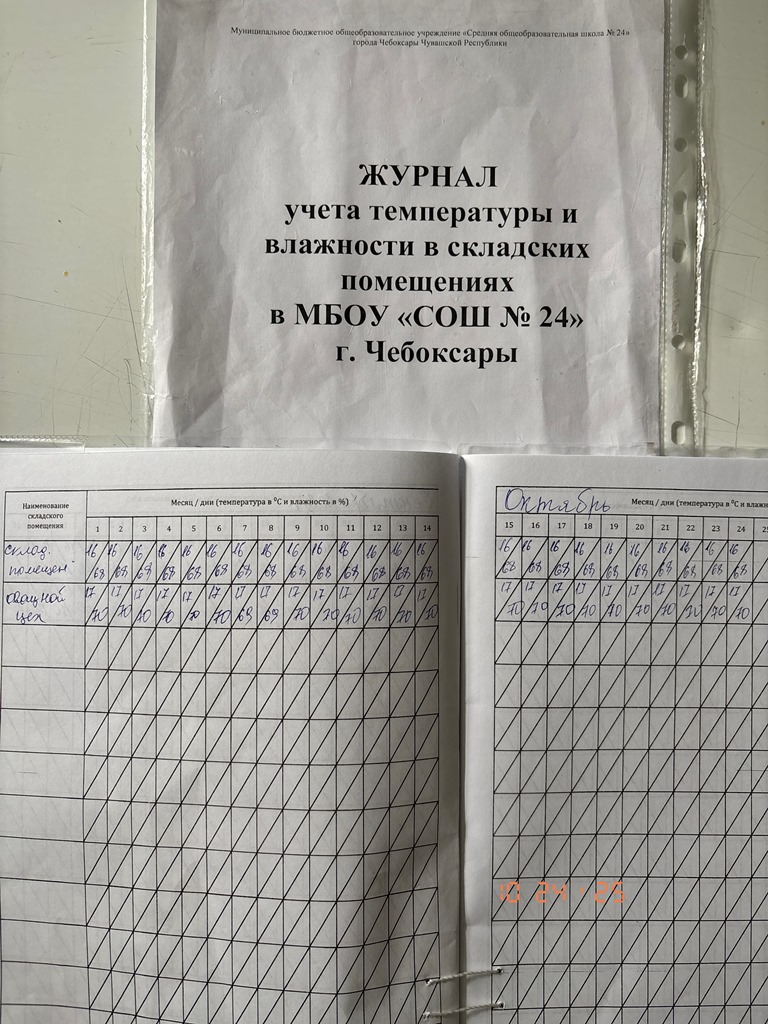 Муниципальное бюджетное общеобразовательное учреждение «Средняя общеобразовательная школа № 24»
города Чебоксары Чувашской Республики
ЖУРНАЛ
учета температуры и
влажности в складских
помещениях
в МБОУ «СОШ № 24»
г. Чебоксары
Наименование складского помещения
Месяц / дни (температура в °С и влажность в %)
1 2 3 4 5 6 7 8 9 10 11 12 13 14
склад. 16 16 16 16 16 16 16 16 16 16 16 16 16 16
помещен 68 68 68 68 68 68 68 68 68 68 68 68 68 68
овощной 17 17 17 17 17 17 17 17 17 17 17 17 17 17
цех 70 70 70 70 70 70 69 69 70 70 70 70 70 70
Октябрь Месяц / дни (температура в °С и влажн
15 16 17 18 19 20 21 22 23 24
16 16 16 16 16 16 16 16 16 16
68 68 68 68 68 68 68 68 68 68
17 17 17 17 17 17 17 17 17 17
70 70 70 70 70 70 70 70 70 70
10 24 '25